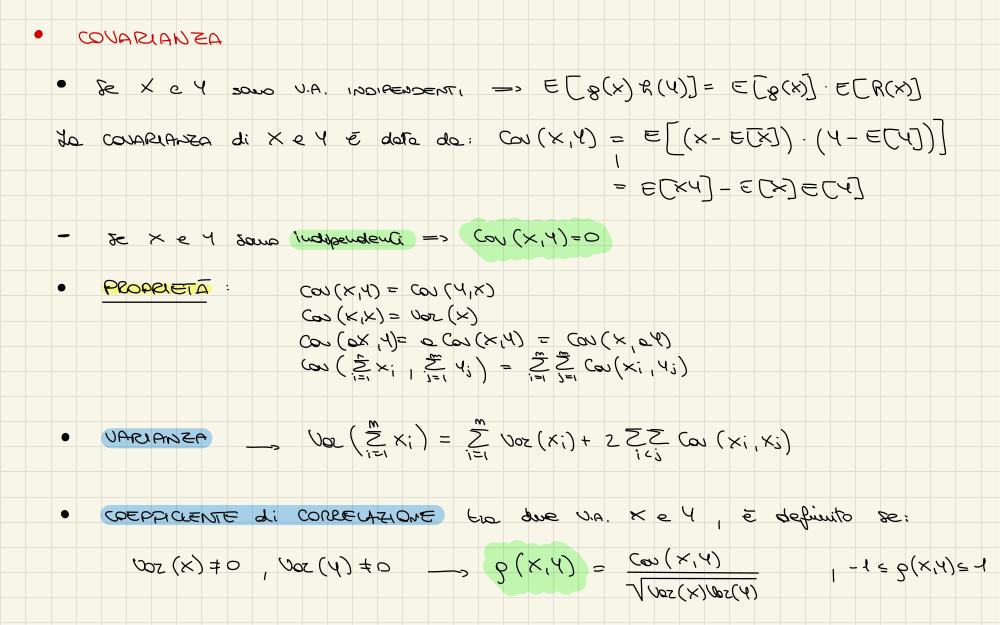 • COVARIANZA
• Se X e Y sono V.A. INDIPENDENTI => E[g(x) h(Y)] = E[g(x)] · E[h(x)]
La COVARIANZA di X e Y è data da: Cov(X,Y) = E[(X-E[X]) · (Y-E[Y])]
= E[XY] - E[X]E[Y]
- Se X e Y sono indipendenti => Cov(X,Y)=0
• PROPRIETÀ :
Cov(X,Y) = Cov(Y,X)
Cov(X,X) = Var(X)
Cov(aX,Y) = a Cov(X,Y) = Cov(X,aY)
Cov(∑_{i=1}^{n} Xi , ∑_{j=1}^{m} Yj) = ∑_{i=1}^{n} ∑_{j=1}^{m} Cov(Xi,Yj)
• VARIANZA → Var(∑_{i=1}^{n} Xi) = ∑_{i=1}^{n} Var(Xi) + 2 ∑∑_{i<j} Cov(Xi,Xj)
• COEFFICIENTE di CORRELAZIONE tra due V.A. X e Y , è definito se:
Var(X) ≠ 0 , Var(Y) ≠ 0 → ρ(X,Y) = Cov(X,Y) / √Var(X)Var(Y) , -1 ≤ ρ(X,Y) ≤ -1